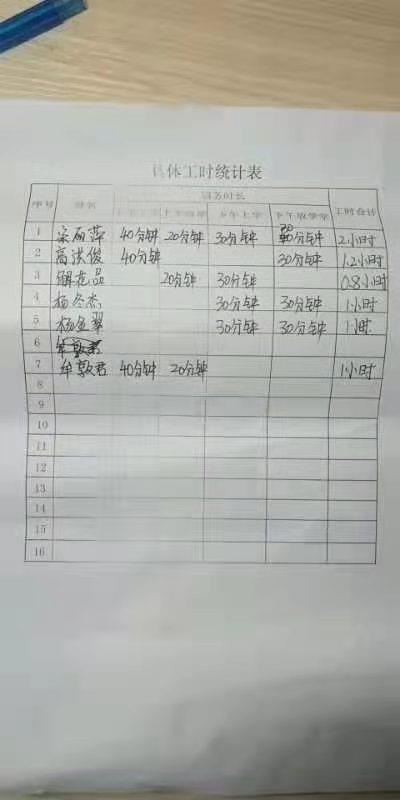 具体工时统计表
序号 姓名 服务时长 工时合计
上午上学 上午放学 下午上学 下午放学
1 梁丽萍 40分钟 20分钟 30分钟 30分钟 2小时
2 高洪俊 40分钟 30分钟 1.2小时
3 20分钟 30分钟 0.8小时
4 杨冬杰 30分钟 30分钟 1小时
5 杨金翠 30分钟 30分钟 1小时
6
7 牟敦君 40分钟 20分钟 1小时
8
9
10
11
12
13
14
15
16